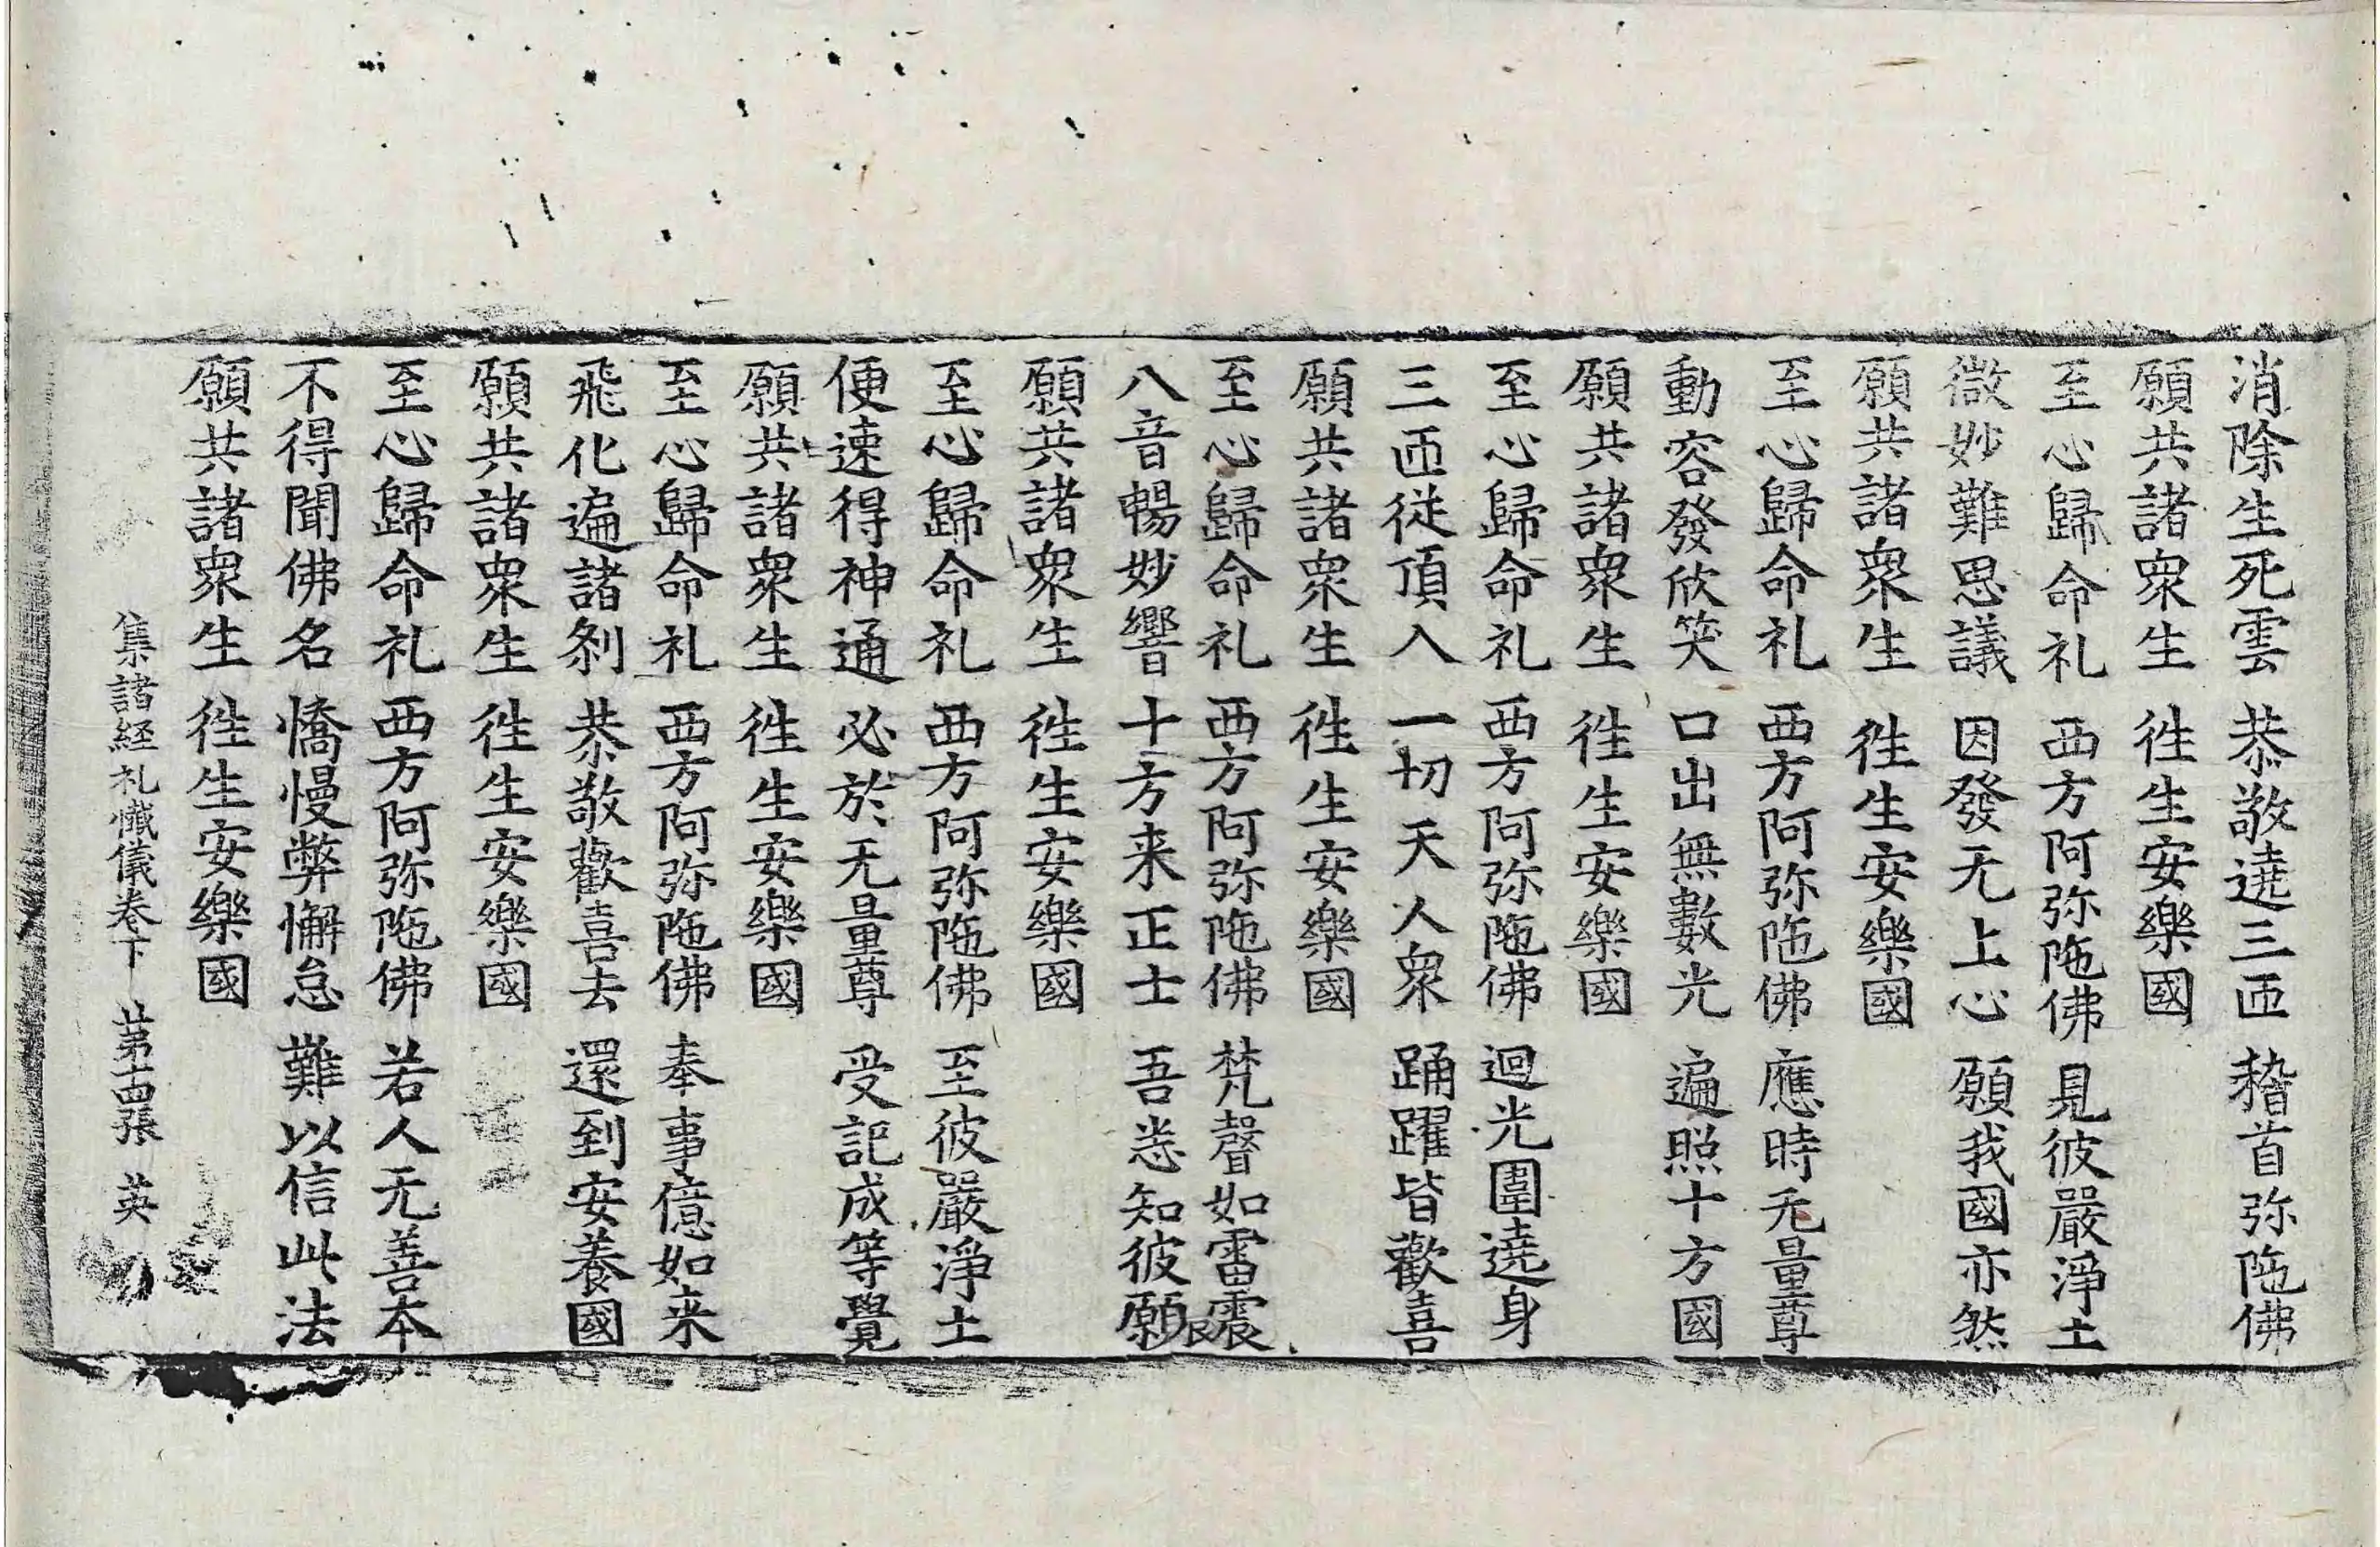 消除生死雲　恭敬遶三匝　稽首弥陁佛
願共諸衆生　徃生安樂國
至心歸命礼　西方阿弥陁佛　見彼嚴淨土
微妙難思議　因發无上心　願我國亦然
願共諸衆生　徃生安樂國
至心歸命礼　西方阿弥陁佛　應時无量尊
動容發欣笑　口出無數光　遍照十方國
願共諸衆生　徃生安樂國
至心歸命礼　西方阿弥陁佛　迴光圍遶身
三匝從頂入　一切天人衆　踊躍皆歡喜
願共諸衆生　徃生安樂國
至心歸命礼　西方阿弥陁佛　梵聲如雷震
八音暢妙響　十方来正士　吾悉知彼願
願共諸衆生　徃生安樂國
至心歸命礼　西方阿弥陁佛　至彼嚴淨土
便速得神通　必於无量尊　受記成等覺
願共諸衆生　徃生安樂國
至心歸命礼　西方阿弥陁佛　奉事億如来
飛化遍諸刹　恭敬歡喜去　還到安養國
願共諸衆生　徃生安樂國
至心歸命礼　西方阿弥陁佛　若人无善本
不得聞佛名　憍慢弊懈怠　難以信此法
願共諸衆生　徃生安樂國
集諸経礼懺儀卷下　苐十四張　英